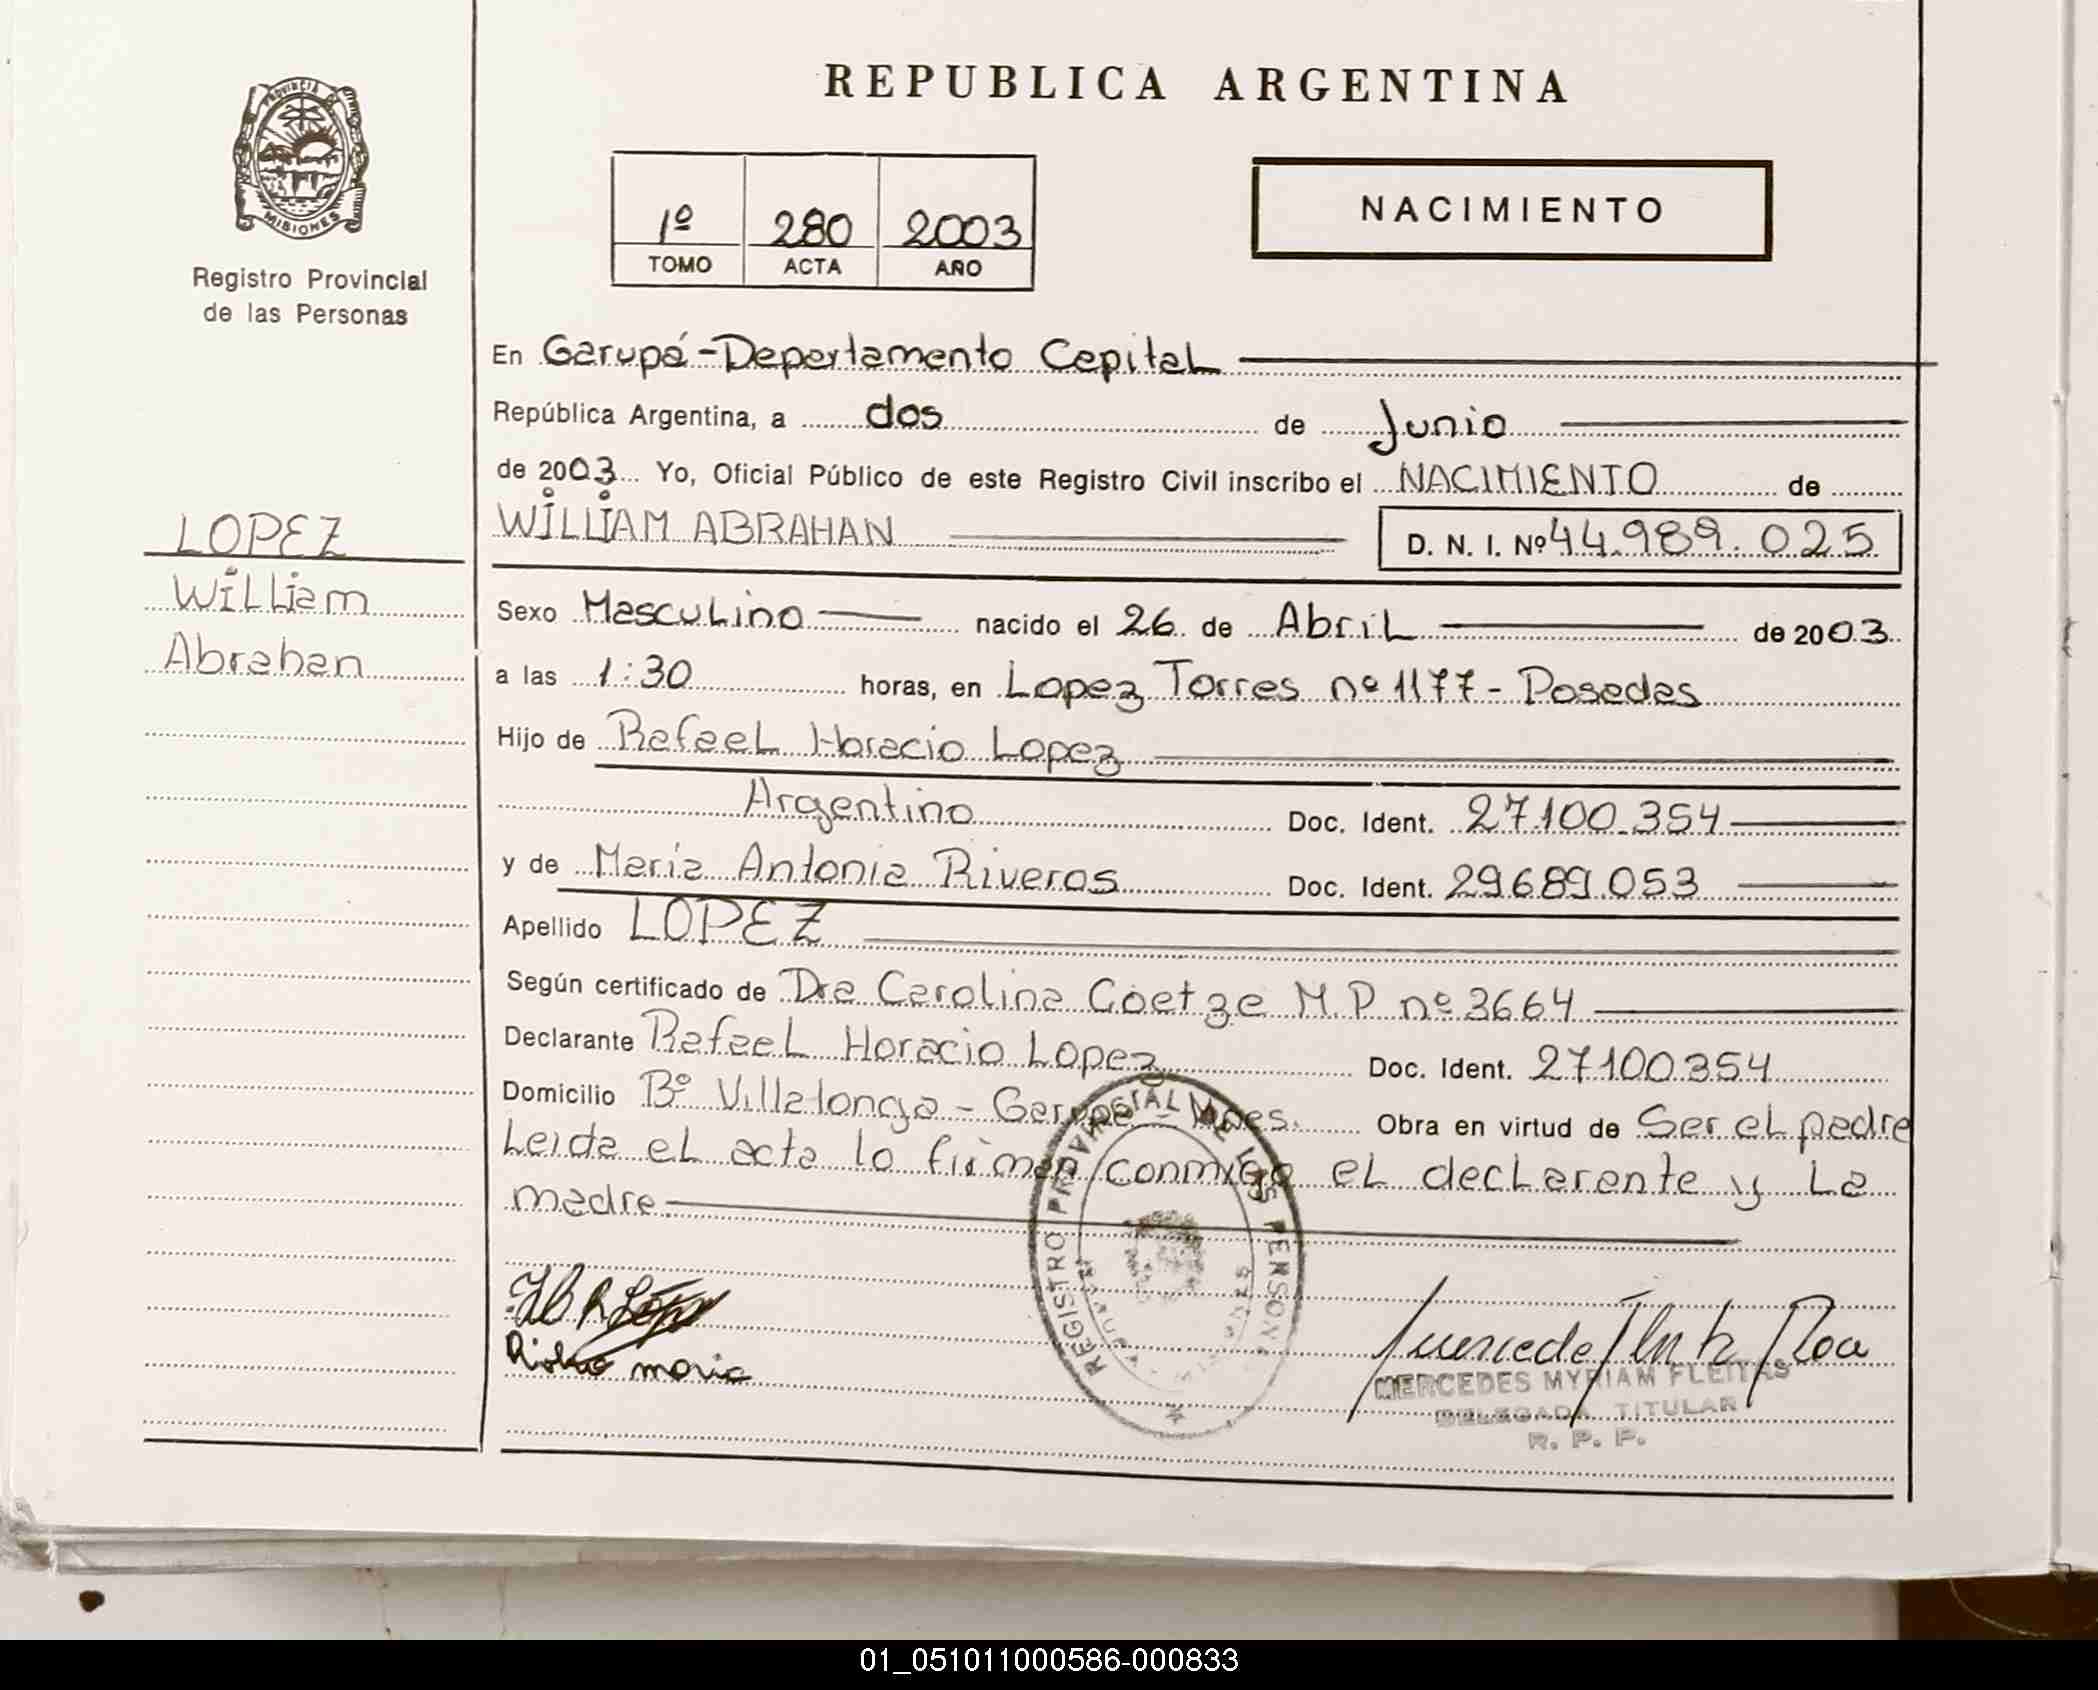 REPUBLICA ARGENTINA
PROVINCIA DE
MISIONES
Registro Provincial
de las Personas
1º 280 2003
TOMO ACTA AÑO
NACIMIENTO
En Garupá - Departamento Capital
República Argentina, a dos de Junio
de 2003 Yo, Oficial Público de este Registro Civil inscribo el NACIMIENTO de
WILLIAM ABRAHAN D. N. I. Nº 44.989.025
LOPEZ
William
Abrahan
Sexo Masculino nacido el 26 de Abril de 2003
a las 1:30 horas, en Lopez Torres nº 1177 - Posadas
Hijo de Rafael Horacio Lopez
Argentino Doc. Ident. 27.100.354
y de Maria Antonia Riveros Doc. Ident. 29.689.053
Apellido LOPEZ
Según certificado de Dra Carolina Goetze M.P nº 3664
Declarante Rafael Horacio Lopez Doc. Ident. 27.100.354
Domicilio Bº Villalonga - Garupa - Mnes. Obra en virtud de Ser el padre
Leida el acta lo firman conmigo el declarante y La
madre
REGISTRO PROVINCIAL DE LAS PERSONAS
MISIONES
maria
MERCEDES MYRIAM FLEITAS
DELEGADA TITULAR
R. P. P.
01_051011000586-000833